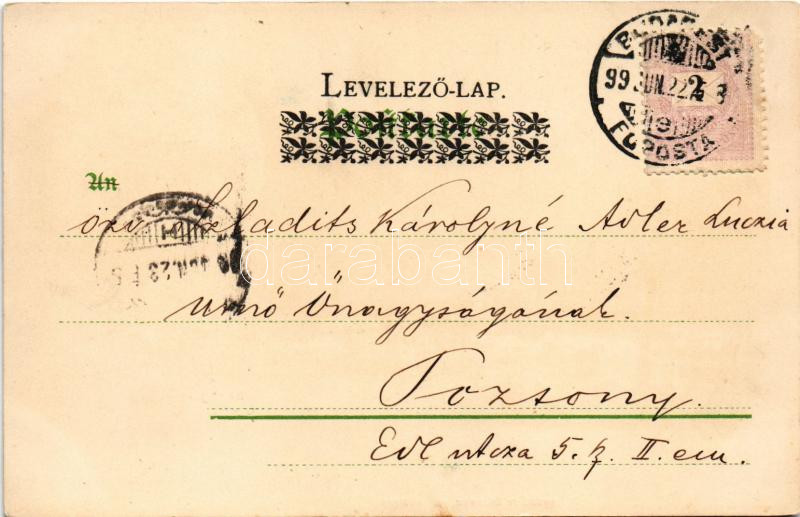 LEVELEZŐ-LAP.
BUDAPEST
99 JUN. 22.
FŐPOSTA
2
An
özv. Szladits Károlyné Adler Luczia
JUN. 23
darabanth
urnő Önagyságának.
Pozsony.
Edl utcza 5. z. II. em.